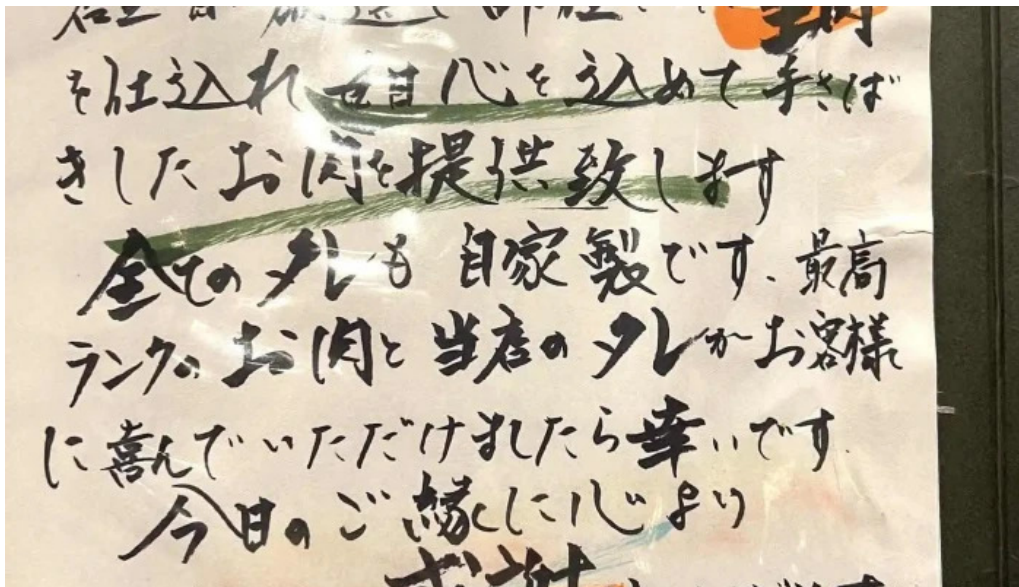 を仕入れ 真心を込めて手さば
きしたお肉を提供致します
全てのタレも自家製です、最高
ランクのお肉と当店のタレがお客様
に喜んでいただけましたら幸いです
今日のご縁に心より
感謝